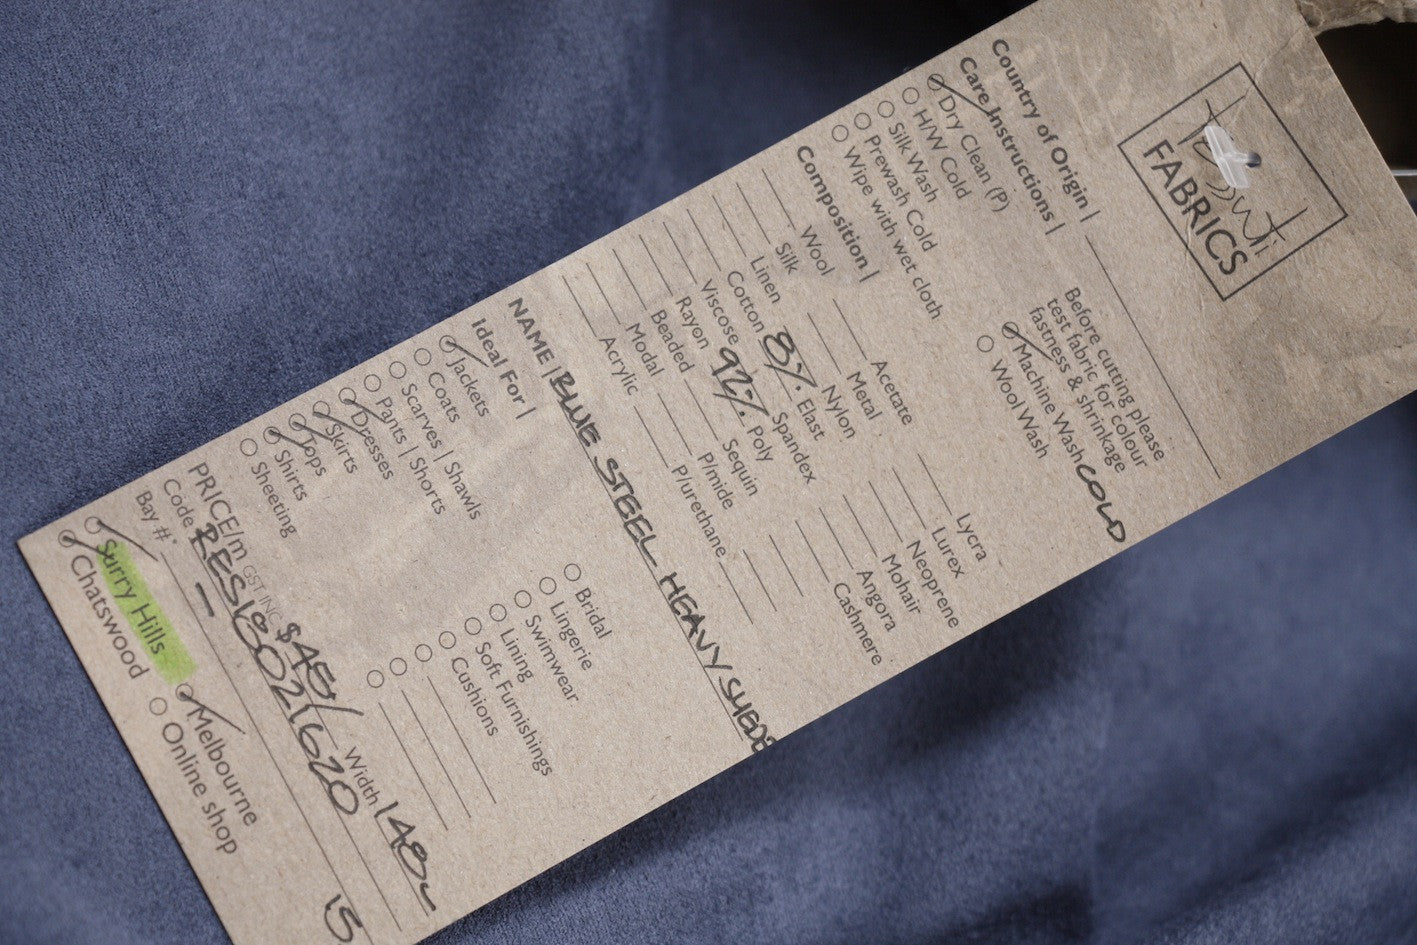 FABRICS
Country of Origin |
Care Instructions |
Dry Clean (P)
H/W Cold
Silk Wash
Prewash Cold
Wipe with wet cloth
Before cutting please
test fabric for colour
fastness & shrinkage
Machine Wash COLD
Wool Wash
Composition |
Wool
Silk
Linen
Cotton
Viscose
Rayon
Beaded
Modal
Acrylic
Acetate
Metal
Nylon
8% Elast
Spandex
92% Poly
Sequin
P/mide
P/urethane
Lycra
Lurex
Neoprene
Mohair
Angora
Cashmere
NAME | BLUE STEEL HEAVY
Ideal For |
Jackets
Coats
Scarves | Shawls
Pants | Shorts
Dresses
Skirts
Tops
Shirts
Sheeting
Bridal
Lingerie
Swimwear
Lining
Soft Furnishings
Cushions
PRICE/m GST INC $48/ Width 148
Code RES18021620
Bay #
Surry Hills
Chatswood
Melbourne
Online shop
15